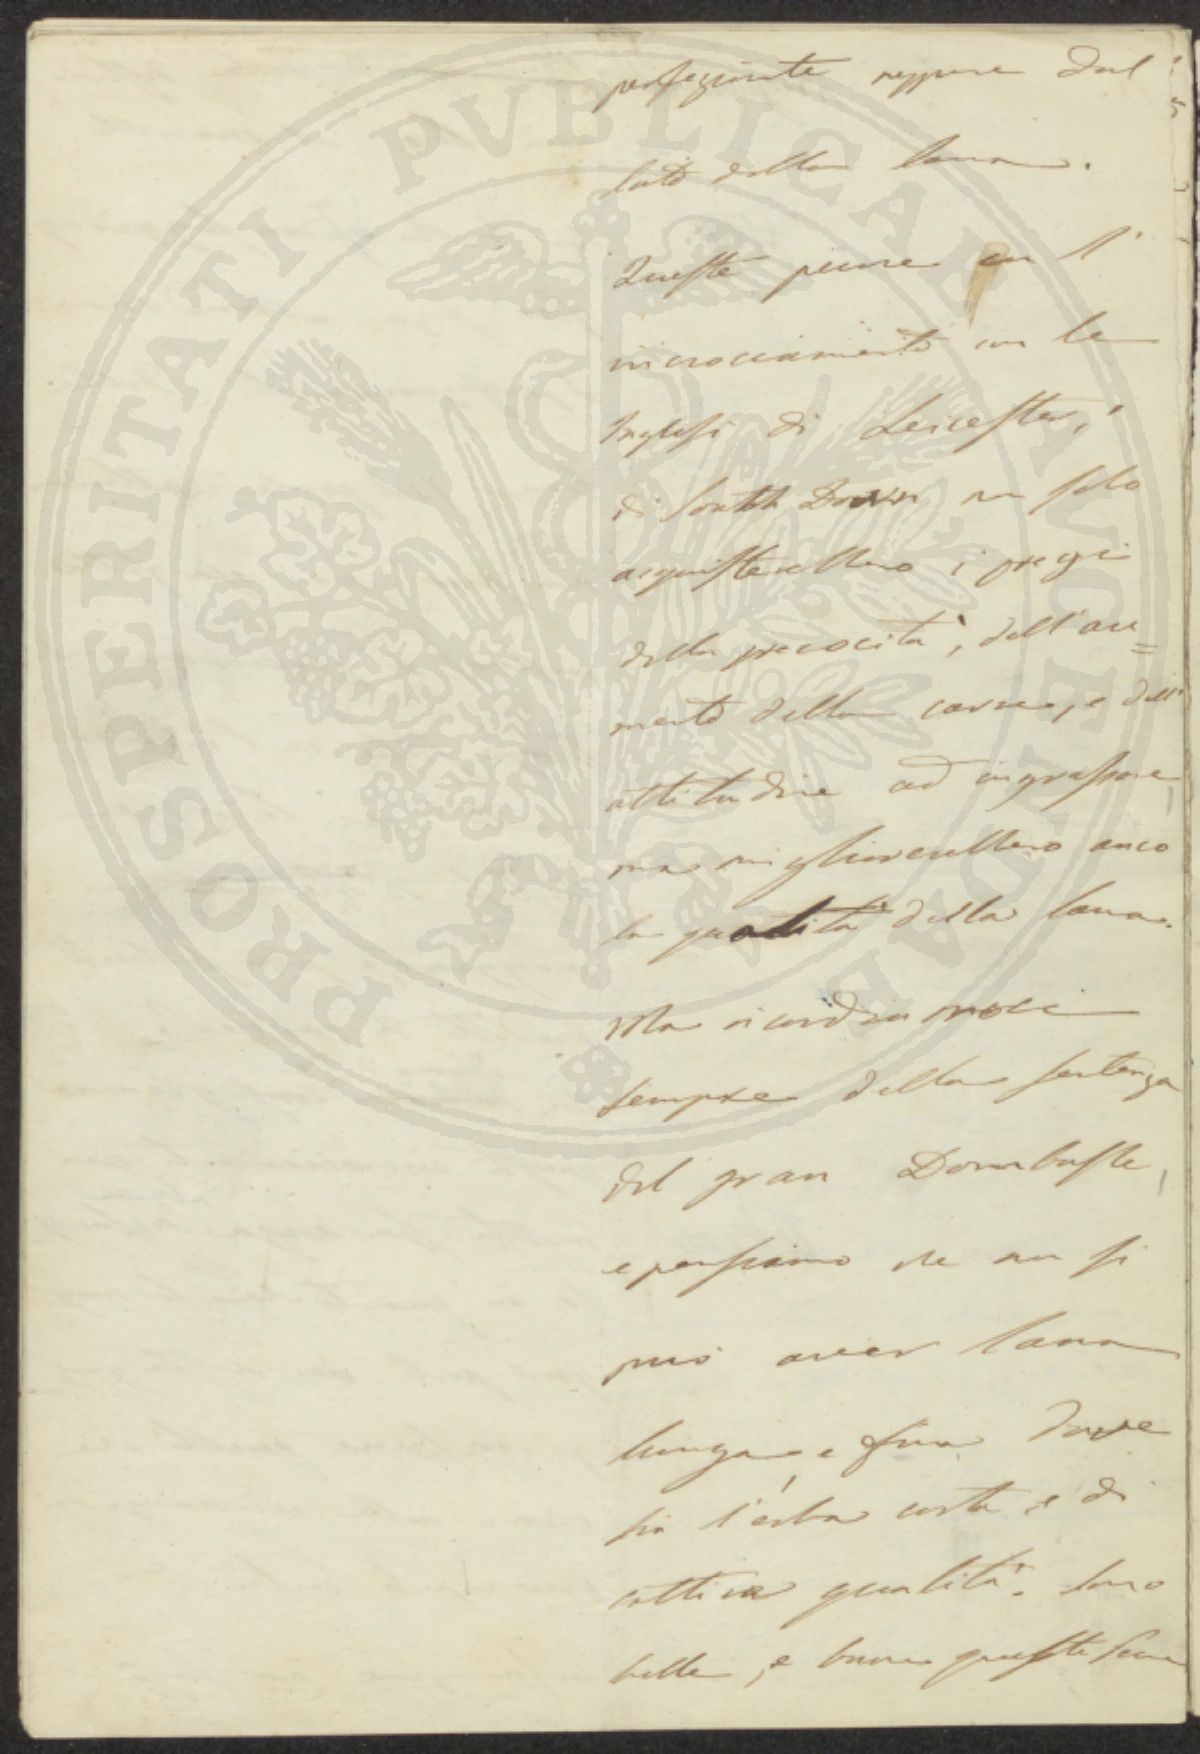 perfezionate neppure dal
lato della lana.
Queste pecore con l'
incrociamento con le
Inglesi di Leicester, e
di South Down non solo
acquisterebbero i pregi
della precocità, dell'au=
mento della carne, e dell'
attitudine ad ingrassare,
ma migliorerebbero anco
la qualità della lana.
Ma ricordiamoci
sempre della sentenza
del gran Dombasle,
e pensiamo che non si
può aver lana
lunga e fina dove
sia l'erba corta, e di
cattiva qualità. Sono
belle, e buone queste
PROSPERITATI PUBLICAE AUGENDAE